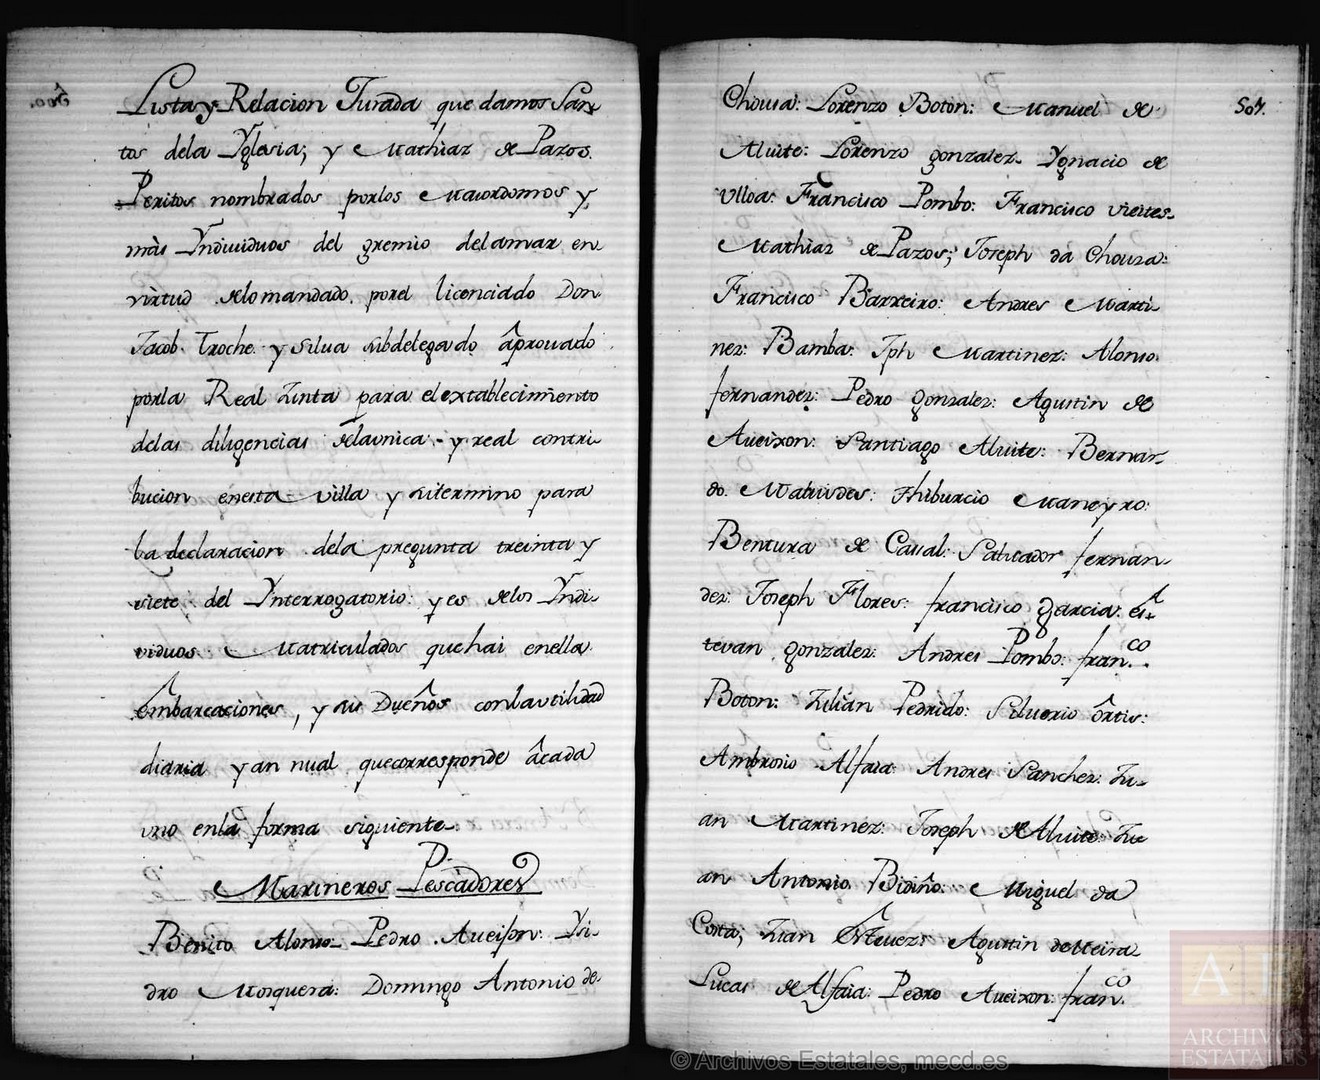 Lista y Relacion Jurada que damos San-
tos dela Yglesia; y Mathias de Pazos.
Peritos nombrados porlos Maiordomos y
màs Yndiuiduos del gremio delamar en
virtud delomandado porel licenciado Don
Jacob Troche y Silua subdelegado âprouado
porla Real Junta para el extablecimiento
delas diligencias delavnica y real contri-
bucion enesta villa y sutermino para
la declaracion dela pregunta treinta y
siete del Ynterrogatorio: y es delos Yndi-
viduos Matriculados quehai enella
êmbarcaciones, y sus Dueños conlautilidad
diaria y an nual quecorresponde âcada
vno enla forma siguiente
Marineros Pescadores
Benito Alonso Pedro Aueixon: Ysi-
dro Mosquera: Domingo Antonio de
507.
Chousa: Lorenzo Boton: Manuel de
Aluite: Lorenzo gonzalez Ygnacio de
Vlloa: Francisco Pombo: Francisco vieites
Mathias de Pazos; Joseph da Chousa:
Francisco Barreiro: Andres Marti-
nez: Bamba: Jph Martinez: Alonso
fernandez: Pedro gonzalez: Agustin de
Aueixon: Santiago Aluite: Bernar-
do. Thiburcio Maneyro:
Bentura de Caual: Saluador fernan-
dez: Joseph Flores: francisco garcia: es-
tevan gonzalez: Andres Pombo: fran.co
Boton: Julián Pedrido: Siluerio ôrtis:
Ambrosio Alfaia: Andres Sanchez: Ju-
an Martinez: Joseph de Aluite: Ju-
an Antonio Bidiño: Miguel da
Costa; Juan Esteuez: Agustin deNeira
Lucas deAlfaia: Pedro Aueixon: fran.co
© Archivos Estatales, mecd.es
AE
ARCHIVOS
ESTATALES